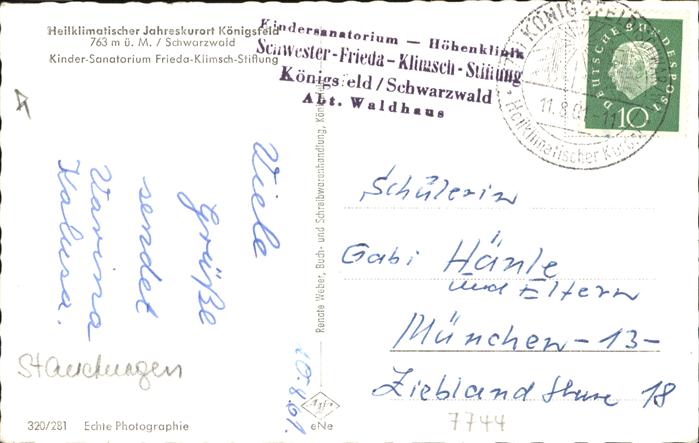 Heilklimatischer Jahreskurort Königsfeld
763 m ü. M. / Schwarzwald
Kinder-Sanatorium Frieda-Klimsch-Stiftung
Kindersanatorium — Höhenklinik
Schwester-Frieda-Klimsch-Stiftung
Königsfeld/Schwarzwald
Abt. Waldhaus
KÖNIGSFELD
11.8.61-11
Heilklimatischer Kurort
DEUTSCHE BUNDESPOST
10
Viele
Grüße
sendet
Varina
Kalusa.
10.8.61.
Stauchungen
320/281 Echte Photographie
Renate Weber, Buch- und Schreibwarenhandlung,
Agfa
eNe
Schülerin
Gabi Hänle
und Eltern
München-13-
Zieblandstrasse 18
7744